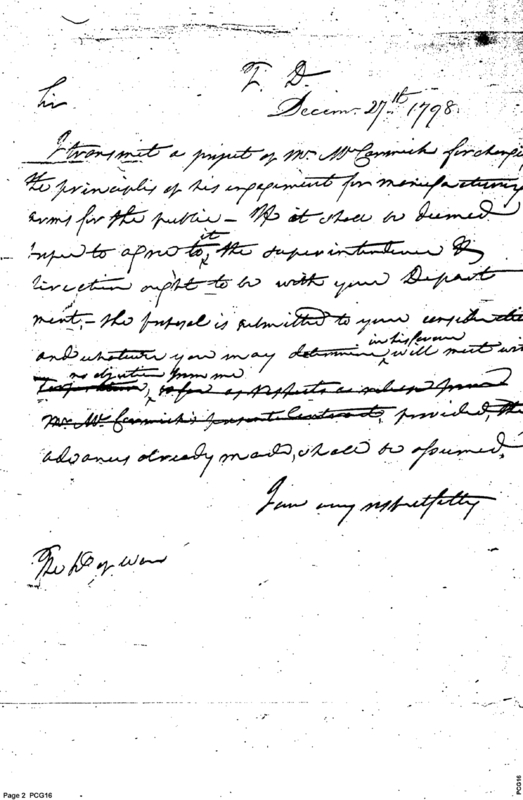 T. D.
Decem. 27th 1798.
Sir
I transmit a project of Mr. McCormick for changi
the principles of his engagement for manufacturing
arms for the public – If it shall be deemed
proper to agree to it, the superintendence &
direction ought to be with your Depart
ment, – the proposal is submitted to your consider
and whatever you may determine in his favour will meet wi
no objection from me
so far as respects a release from
Mr. McCormick's present Contract, provided, the
advances already made, shall be assumed.
I am very respectfully
The S of War
Page 2 PCG16
PCG16